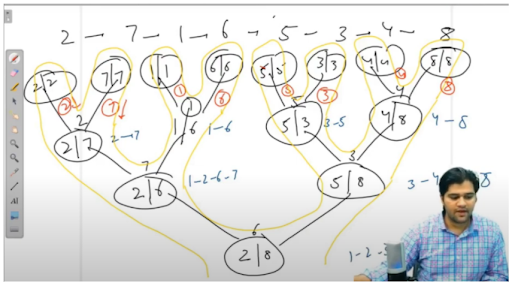 2 → 7 → 1 → 6 → 5 → 3 → 4 → 8
2|2 7|7 1|1 6|6 5|5 3|3 4|4 8|8
2 7 1 6 5 3 4 8
2 1 4
2|7 2→7 1|6 1-6 5|3 3-5 4|8 4-8
7 3
2|6 1-2-6-7 5|8 3-4 8
6
2|8 1-2-3